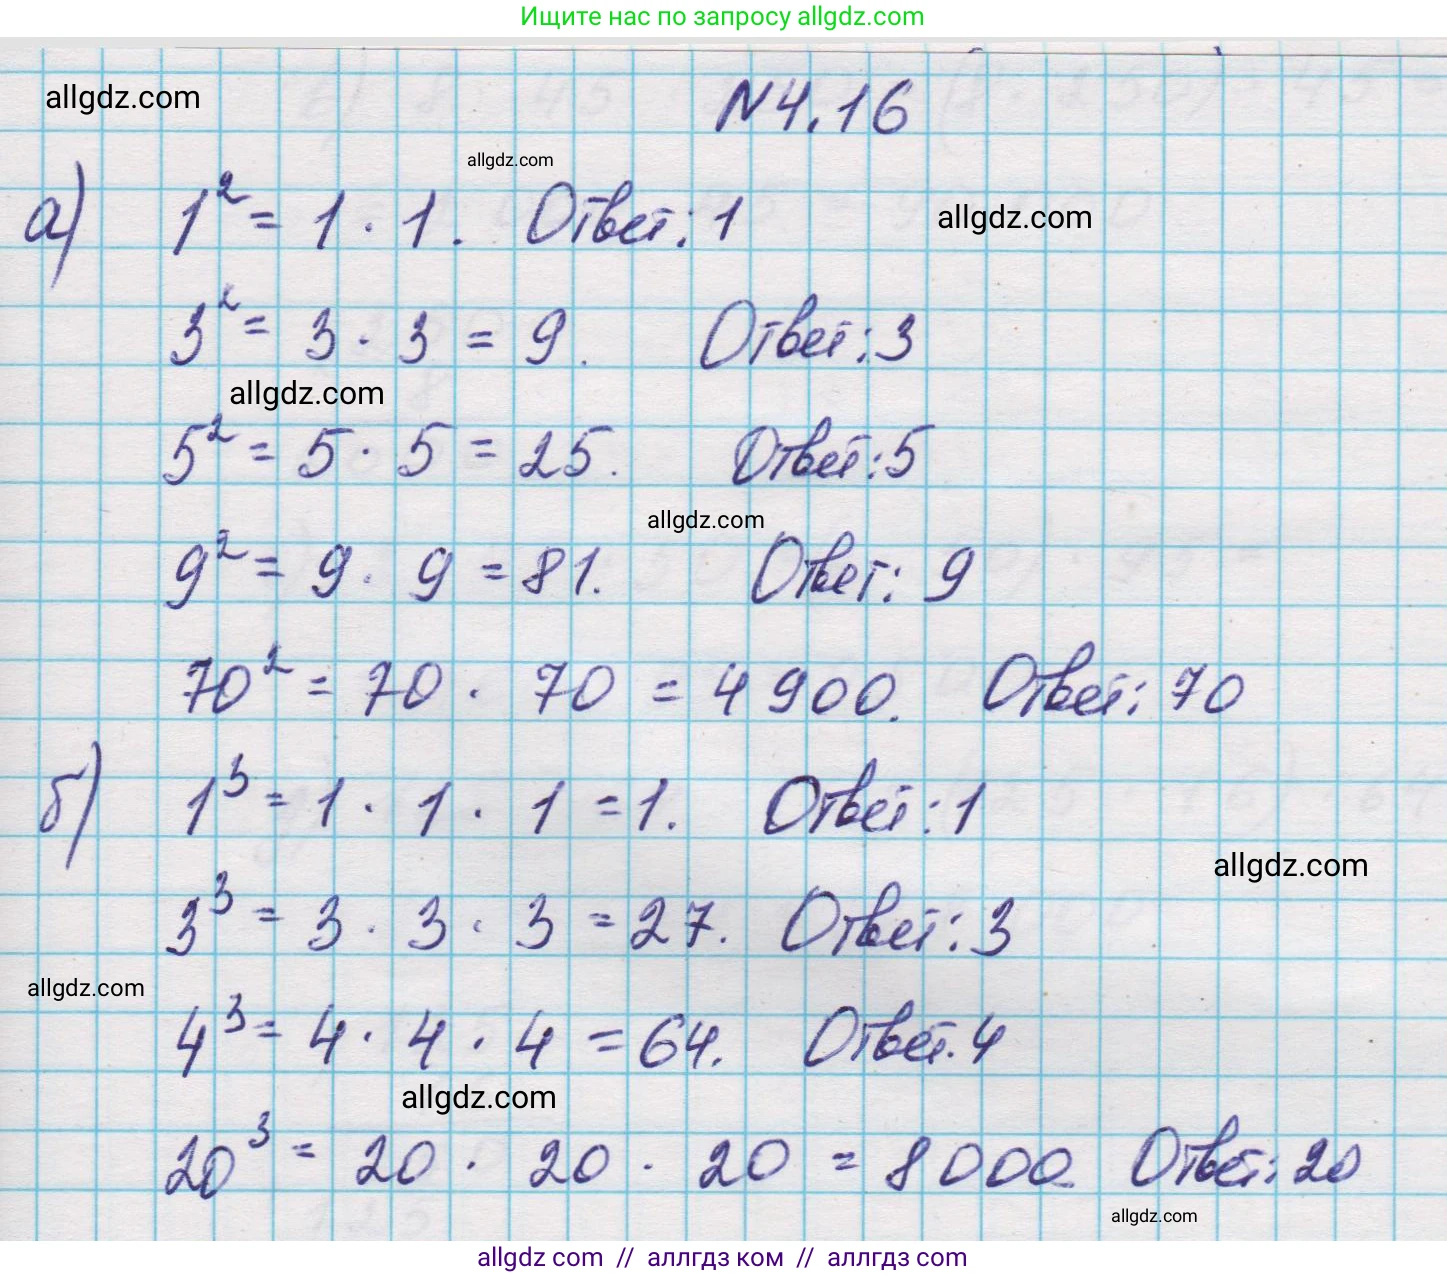 Ищите нас по запросу allgdz.com
allgdz.com
N4.16
allgdz.com
а) 1² = 1 · 1. Ответ: 1
allgdz.com
3² = 3 · 3 = 9. Ответ: 3
allgdz.com
5² = 5 · 5 = 25. Ответ: 5
allgdz.com
9² = 9 · 9 = 81. Ответ: 9
70² = 70 · 70 = 4900. Ответ: 70
б) 1³ = 1 · 1 · 1 = 1. Ответ: 1
allgdz.com
3³ = 3 · 3 · 3 = 27. Ответ: 3
allgdz.com
4³ = 4 · 4 · 4 = 64. Ответ. 4
allgdz.com
20³ = 20 · 20 · 20 = 8000. Ответ: 20
allgdz.com
allgdz com // аллгдз ком // аллгтдз com